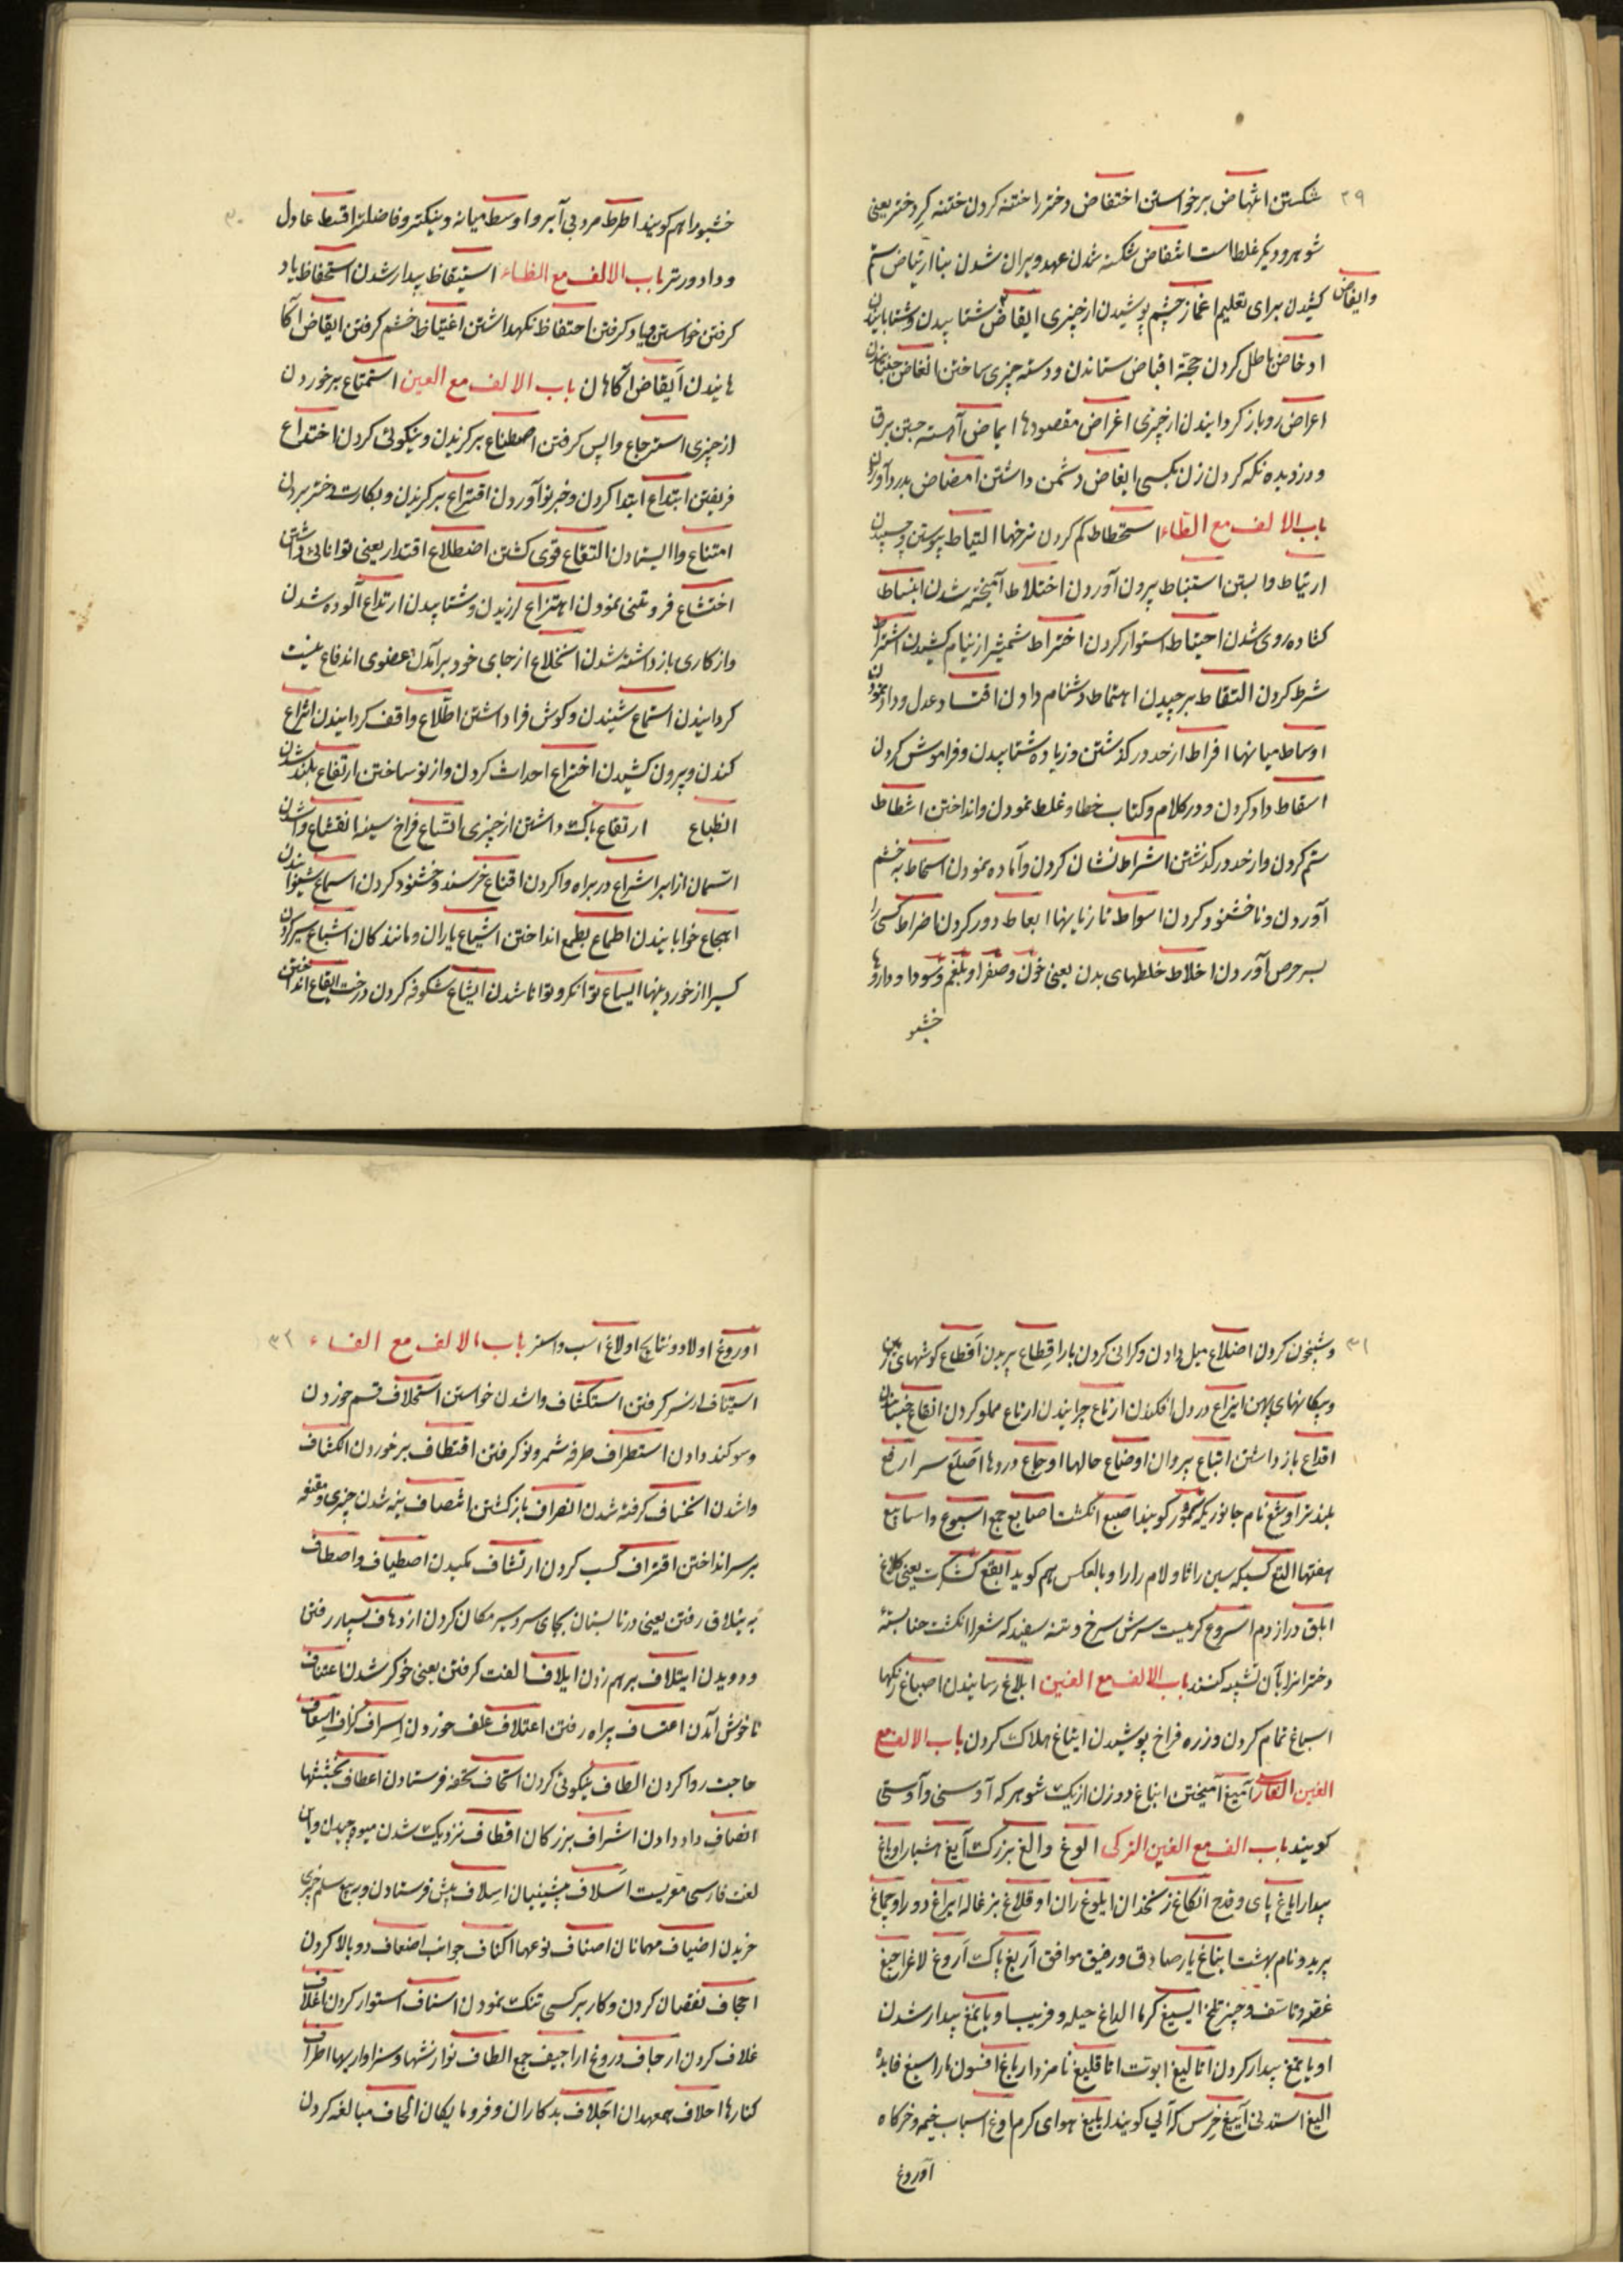 ۲۹
شکستن انتهاض برخواستن اختفاض دختر را ختنه کردن ختنه کر دختر یعنی
شوهر و دیگر غلط است انتقاض شکسته شدن عهد و ویران شدن بنا ارتیاض ستم
کشیدن برای تعلیم اغماز چشم پوشیدن از چیزی ایفاض شتابیدن و شتابانیدن
وایفاض
ادخاض باطل کردن حجة اقباض ستاندن و دسته چیزی ساختن انغاض جنبانیدن
اعراض رو باز کردانیدن از چیزی اغراض مقصودها ایماض آهسته جستن برق
و دزدیده نکه کردن زن بکسی ابغاض دشمن داشتن امضاض بدرد آوردن
باب الالف مع الطاء استحطاط کم کردن نرخها التیاط پیوستن و چسپیدن
ارتباط وابستن استنباط بیرون آوردن اختلاط آمیخته شدن انبساط
کشاده روی شدن احتیاط استوار کردن اختراط شمشیر از نیام کشیدن اشتراط
شرط کردن التقاط برچیدن اهتماط دشنام دادن اقتساد عدل و داد نمودن
اوساط میانها افراط از حد در کذشتن و زیاده شتابیدن و فراموش کردن
اسقاط داد کردن و در کلام و کتاب خطا و غلط نمودن و انداختن اشطاط
ستم کردن و از حد در کذشتن اشراط نشان کردن و آماده نمودن اسخاط به خشم
آوردن و ناخشنود کردن اسواط تازیانها ابعاط دور کردن اضراط کسی را
بسر حرص آوردن اخلاط خلطهای بدن یعنی خون و صفرا و بلغم و سودا و داروها
خشبو
۳۰
خشبو را هم کویند اطرط مرد بی آبرو اوسط میانه و نیکتر و فاضلتر اقسط عادل
و دادورتر باب الالف مع الظاء استیقاظ بیدار شدن استحفاظ یاد
کرفتن خواستن و یاد کرفتن احتفاظ نکهداشتن اغتیاظ خشم کرفتن ایقاض آکا
هانیدن آیقاض آکاهان باب الالف مع العین استمتاع برخوردن
از چیزی استرجاع واپس کرفتن اصطناع برکزیدن و نیکوئی کردن اختداع
فریفتن ابتداع ابتدا کردن و خبر نو آوردن اقتراع برکزیدن و بکارت دختر بردن
امتناع وا ایستادن التقاع قوی کشتن اضطلاع اقتدار یعنی توانائی داشتن
اختشاع فروتنی نمودن اهتزاع لرزیدن و شتابیدن ارتداع آلوده شدن
و از کاری باز داشته شدن انخلاع از جای خود برآمدن عضوی اندفاع نیست
کردانیدن استماع شنیدن و کوش فرا داشتن اطلاع واقف کردانیدن انتزاع
کندن و بیرون کشیدن اختراع احداث کردن و از نو ساختن ارتفاع بلند شدن
انطباع ارتقاع باک داشتن از چیزی اتساع فراخ سینه انقشاع وا شدن
آسمان از ابر اشراع در براه وا کردن اقناع خرسند و خشنود کردن اسماع شنوانیدن
اهجاع خوابانیدن اطماع بطمع انداختن اشیاع یاران و مانند کان اشباع سیر کردن
کسیرا از خوردنیها ایساع توانکر و توانا شدن ایشاع شکوفه کردن درخت ایقاع انداختن
۳۱
و شبخون کردن اضلاع میل دادن و کرانی کردن بار اقطاع بریدن آقطاع کوشهای زمین
و پیکانهای پهن ایزاع در دل افکندن ارتاع چرانیدن ارتاع مملو کردن انقاع خیسانیدن
اقداع باز داشتن اتباع پیروان اوضاع حالها اوجاع دردها اصلع سر ارفع
بلندتر اوشع نام جانوریکه سمور کویند اصبع انکشت اصابع جمع اسبوع و اسابیع
هفتها الثغ کسیکه سین را ثا و لام را را و بالعکس هم کوید ابقع کشکرت یعنی کلاغ
ابلق دراز دم اسروع کرمیست سرش سرخ و تنه سفید که شعرا انکشت حنا بستهٔ
دخترانرا بآن تشبیه کنند باب الالف مع الغین ابلاغ رسانیدن اصباغ رنکها
اسباغ تمام کردن و زره فراخ پوشیدن ایتاغ هلاک کردن باب الالف مع
الغین الفارسی آمیغ آمیختن انباغ دو زن از یک شوهر که آوسنی و آوستی
کویند باب الف مع الغین الترکی الوغ و الغ بزرک آیغ هشیار اویاغ
بیدار ایاغ پای و قدح انکاغ زنخدان ایلوغ ران اوقلاغ بزغاله ایراغ دور اوچماغ
پرید و نام بهشت ایناغ یار صادق و رفیق موافق آریغ پاک آروغ لاغر اجیغ
غصه و تاسف و چیز تلخ ایسیغ کرم الداغ حیله و فریب اویانمغ بیدار شدن
اویاتمغ بیدار کردن اتالیغ ابوت اتاقلیغ نامزد ارباغ افسون اراسیغ فایده
الیغ استدنی آییغ خرس که آنی کویند ایلیغ هوای کرم اوغ اسباب خیمه و خرکاه
آوروغ
۳۲
اوروغ اولاد و نتایج اولاغ اسب و استر باب الالف مع الفاء
استیناف از سر کرفتن استکشاف وا شدن خواستن استحلاف قسم خوردن
و سوکند دادن استطراف طرفه شمردن و نو کرفتن اقتطاف برخوردن انکشاف
وا شدن انخساف کرفته شدن انصراف بازکشتن انتصاف نیمه شدن چیزی و مقنعه
بر سر انداختن اقتراف کسب کردن ارتشاف مکیدن اصطیاف و اصطاف
به ییلاق رفتن یعنی در تابستان بجای سردسیر مکان کردن ازدهاف بسیار رفتن
و دویدن ایتلاف برهم زدن ایلاف الفت کرفتن یعنی خوکر شدن اعتناف
ناخوش آمدن اعتساف بیراه رفتن اعتلاف علف خوردن اسراف کزاف اسعاف
حاجت روا کردن الطاف نیکوئی کردن اتحاف تحفه فرستادن اعطاف بخششها
انصاف داد دادن اشراف بزرکان اقطاف نزدیک شدن میوه چیدن و باین
لغت فارسی معربست اسلاف پیشینیان اسلاف پیش فرستادن و به بیع سلم چیزی
خریدن اضیاف مهمانان اصناف نوعها اکناف جوانب اضعاف دو بالا کردن
اجحاف نقصان کردن و کار بر کسی تنک نمودن اسناف استوار کردن اغلاف
غلاف کردن ارجاف دروغ اراجیف جمع الطاف نوازشها و سزاواریها اطراف
کنارها احلاف همعهدان اجلاف بدکاران و فرومایکان الحاف مبالغه کردن